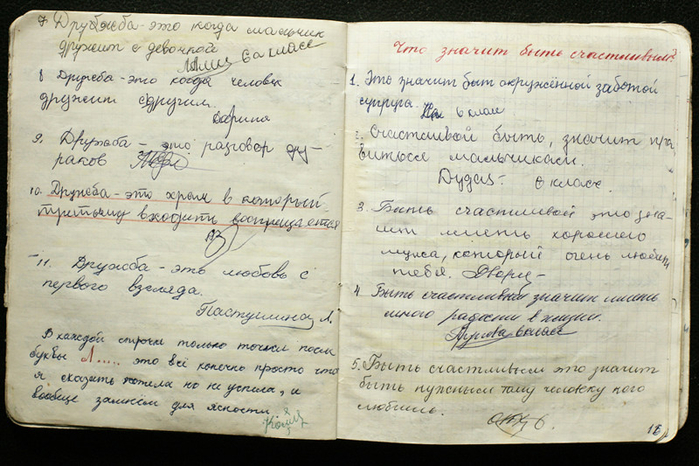 7 Дружба - это когда мальчик
дружит с девочкой
6а классе
8 Дружба - это когда человек
дружит с другим.
Дарина
9. Дружба - это разговор ду-
раков
10. Дружба - это храм в который
третьему входить воспрещается
11. Дружба - это любовь с
первого взгляда.
Пастушина Л.
В каждой строчке только точки после
буквы Л..... это всё конечно просто что
я сказать хотела но не успела, и
вообще замнём для ясности.
Что значит быть счастливым?
1. Это значит быт окружённой заботой
супруга. 6 класс
2. Счастливой быть, значит нра
виться мальчикам.
6 класс.
3. Быть счастливой это зна-
ит иметь хорошего
мужа, который очень любит
тебя.
4. Быть счастливой значит иметь
много радости в жизни.
6 класс
5. Быть счастливым это значит
быть нужным тому человеку кого
любишь.
16